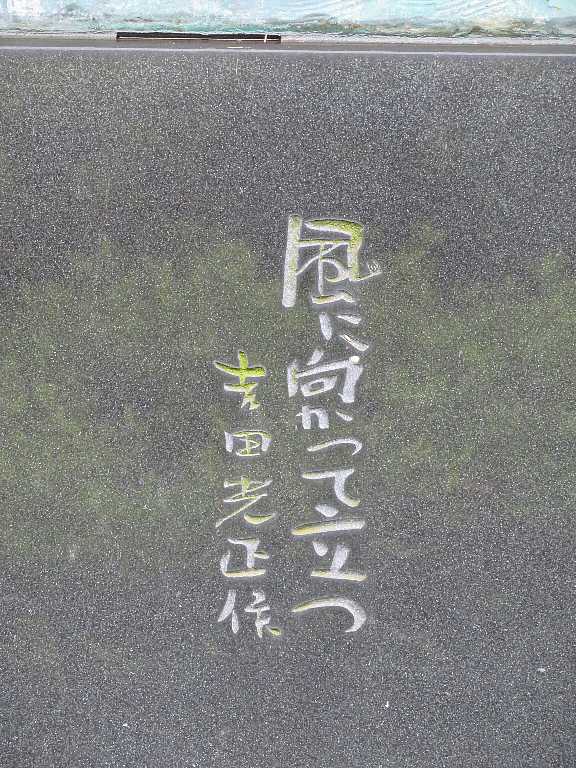 風に向かって立つ
吉田光正作